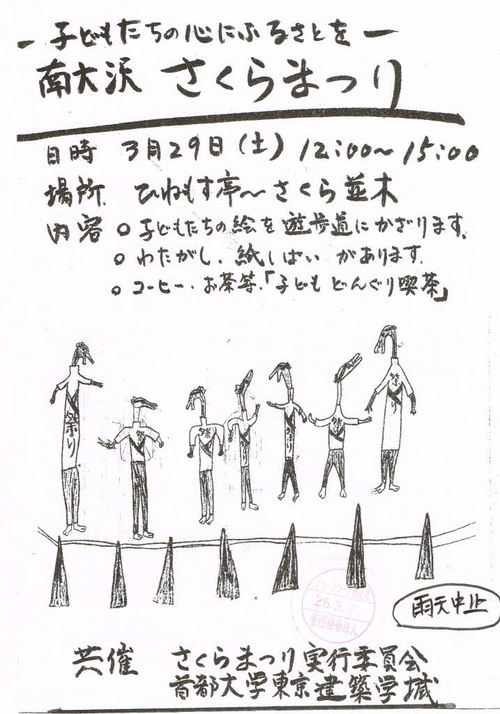 ー子どもたちの心にふるさとをー
南大沢 さくらまつり
日時 3月29日(土) 12:00〜15:00
場所 ひねもす亭〜さくら並木
内容 ○子どもたちの絵を遊歩道にかざります。
○わたがし、紙しばいがあります。
○コーヒー・お茶等、「子どもどんぐり喫茶」
祭り
祭り
祭り
祭り
祭り
祭り
26.3.
管理組合法人
雨天中止
共催 さくらまつり実行委員会
首都大学東京建築学域